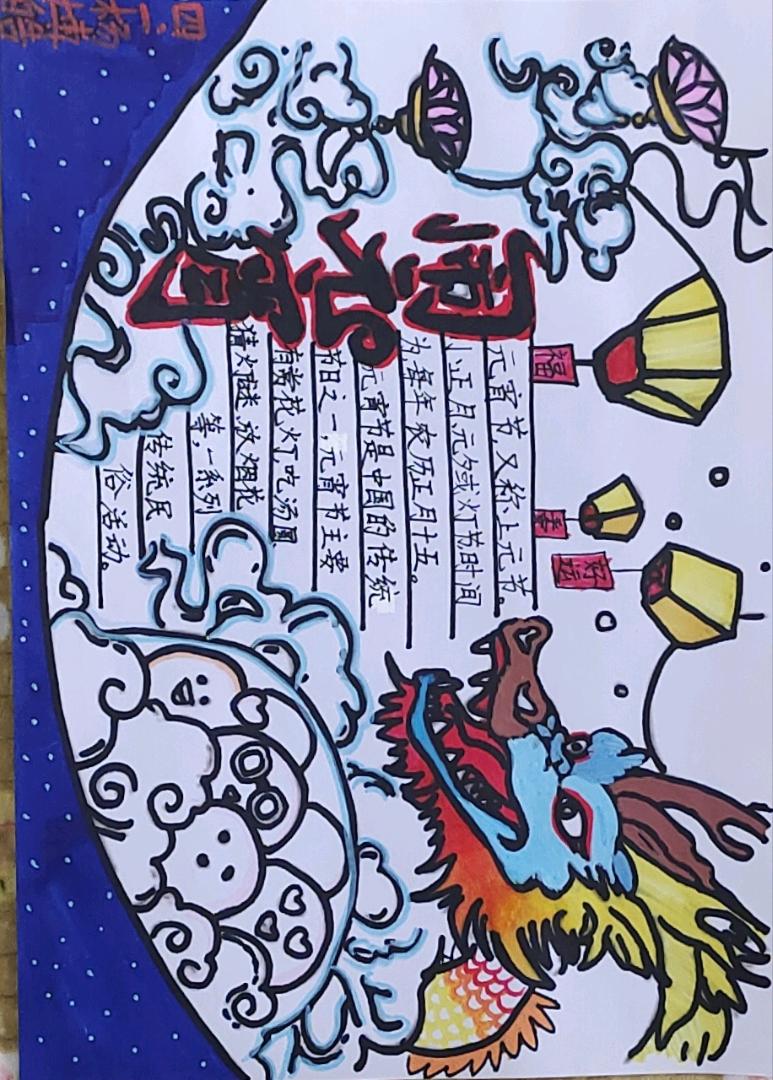 闹元宵
福
好运
元宵节,又称上元节。
小正月元夕或灯节时间
为每年农历正月十五。
元宵节是中国的传统
节日之一,元宵节主要
有赏花灯,吃汤圆
猜灯谜,放烟花
等,一系列
传统民
俗活动。
四二杨博